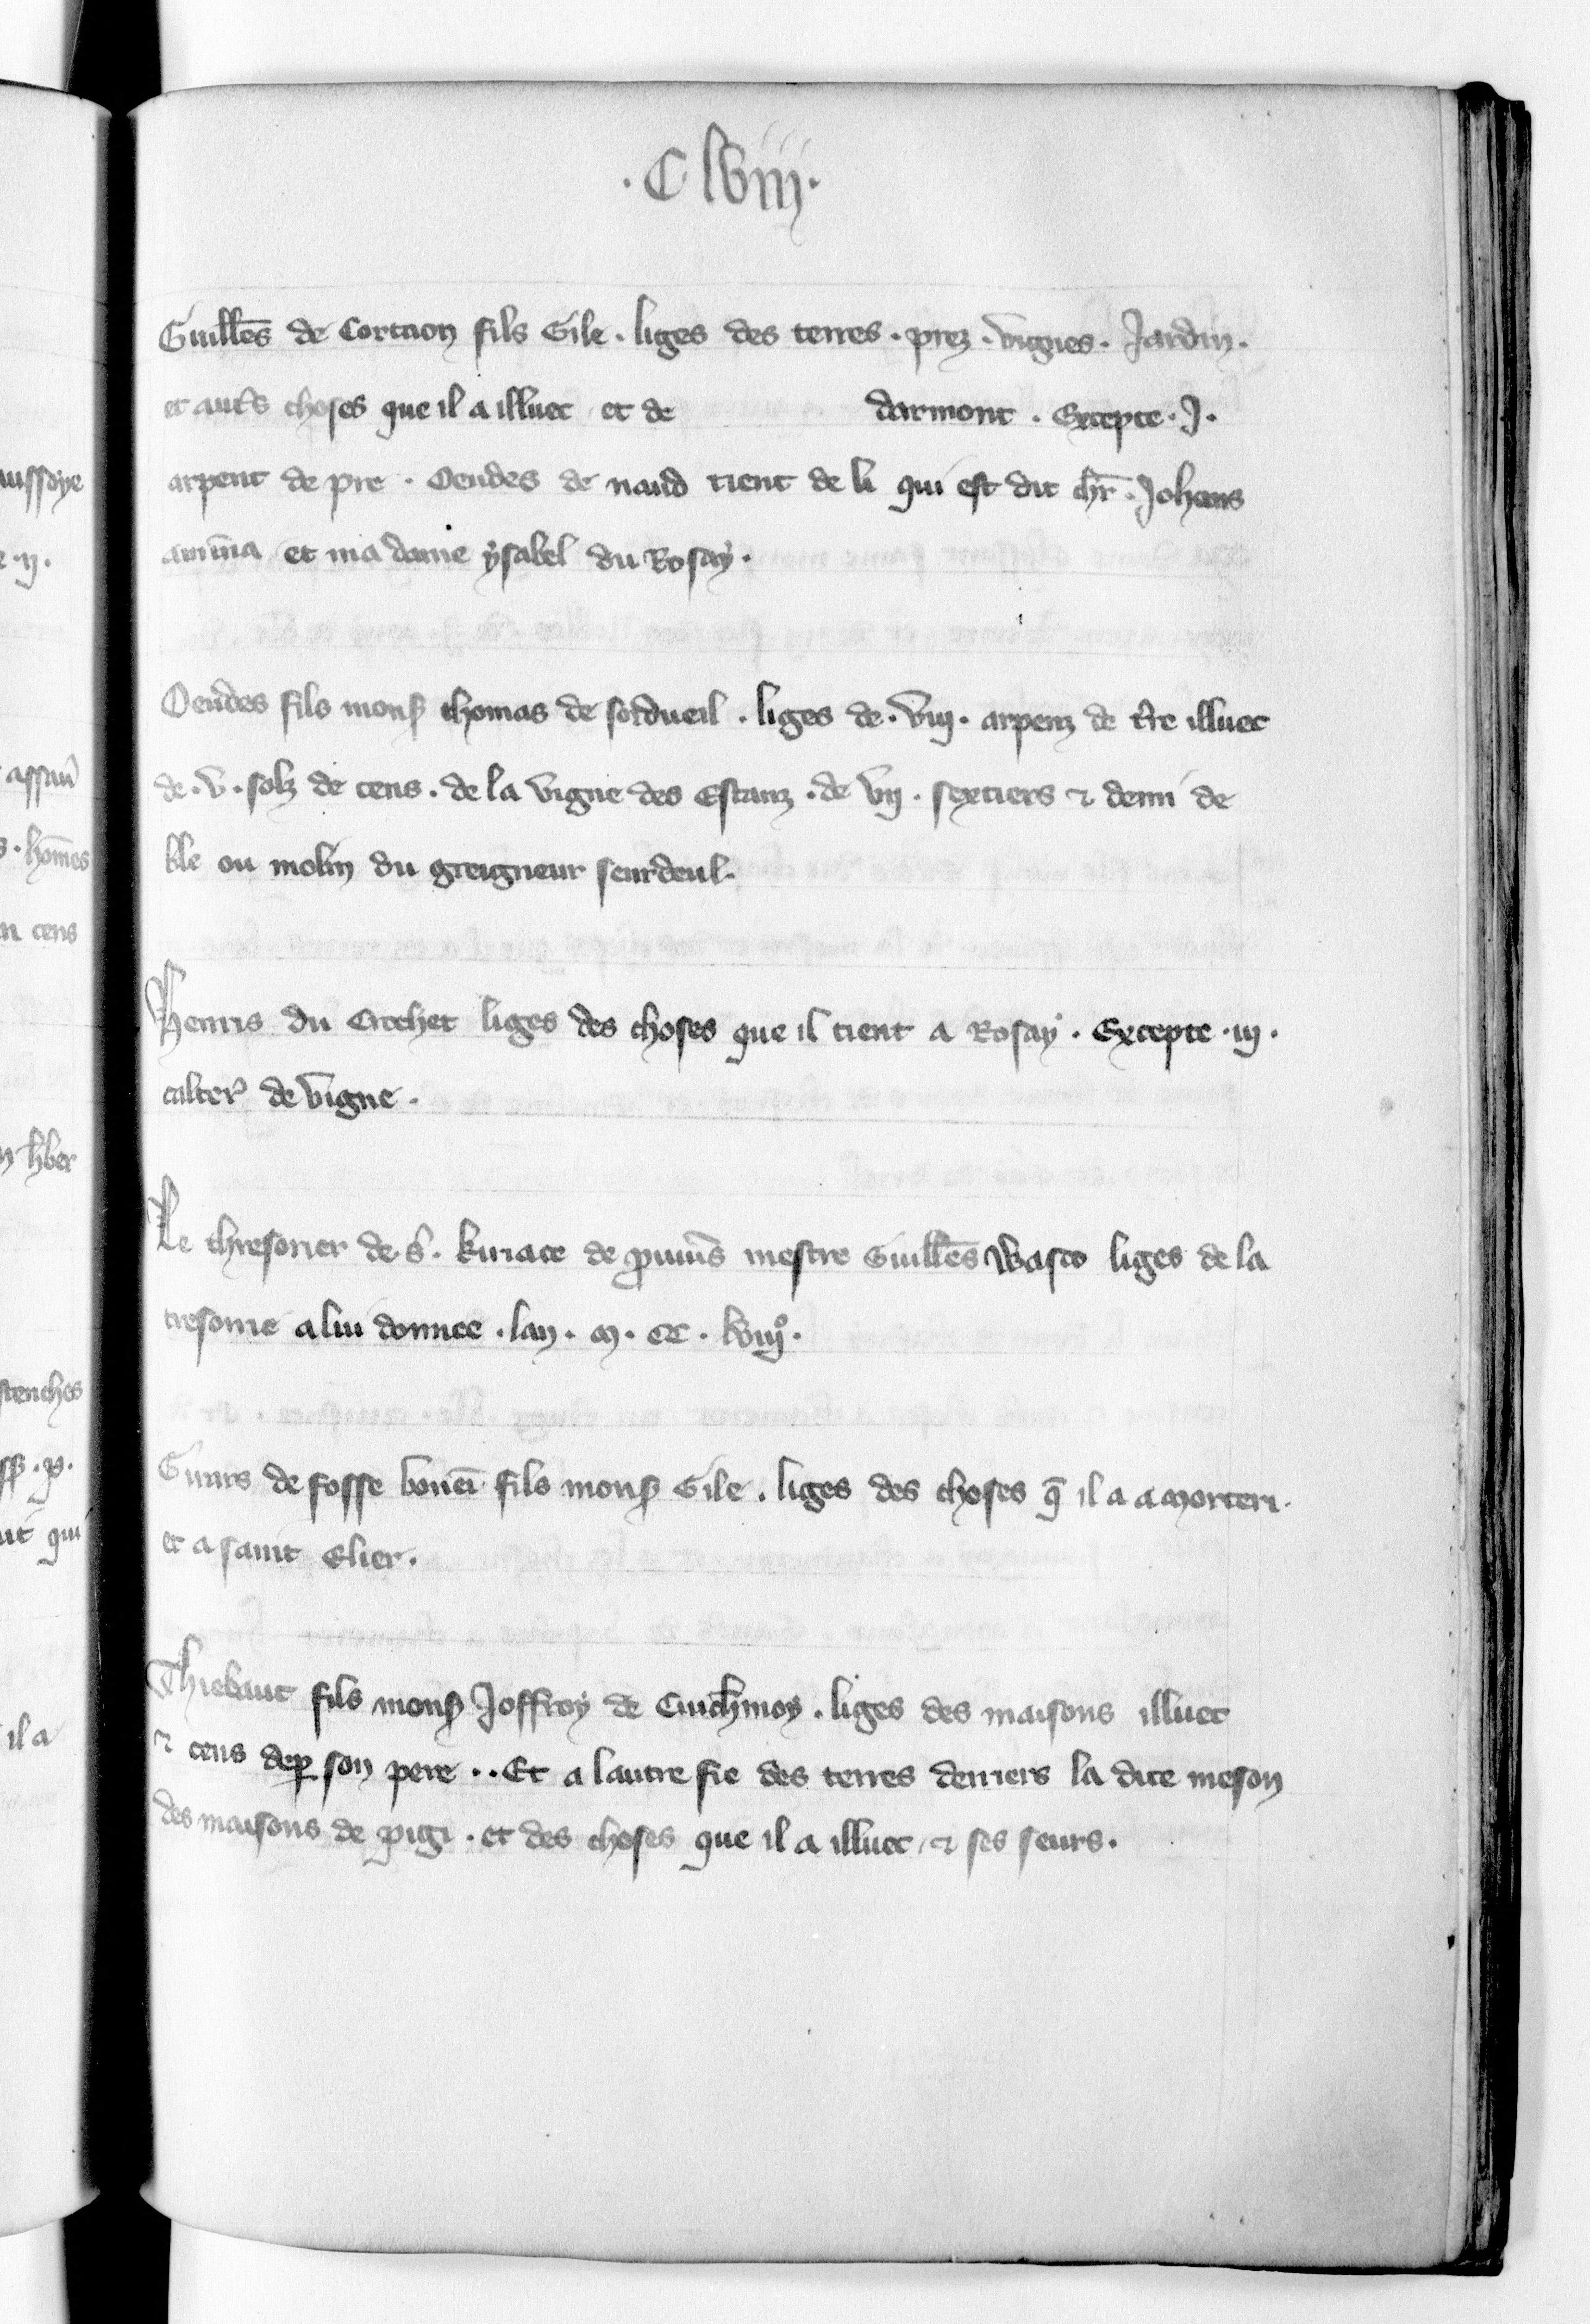 . C lviij .
Guill̄es de Cortaon fils Gile . liges des terres . prez . vignes . Jardin .
et aut̾s choses que il a illuec et de darmont . Excepte . J .
arpent de pre . Oeudes de naud tient de li qui est dit ch̄r . Johans
et ma dame ysabel du Rosay .
Oeudes fils monſ thomas de sordueil . liges de . viij . arpenz de t̾re illuec
de . v . solz de cens . de la vigne des Estanz . de vij . sextiers ⁊ demi de
ble ou molin du greigneur seurdeul .
Henris du Crochet liges des choses que il tient a Rosay . Excepte . iij .
de vigne .
Le thresorier de . s̾ . kiriace de prouuīs mestre Guill̄es Wasco liges de la
tresorie a lui donnee . lan . m . CC . lviijº .
de fosse fils monſ Gile . liges des choses q̄ il a a morteri .
et a saint Elier .
Thiebaut fils monſ Joffroy de Cuich̄moy . liges des maisons illuec
⁊ cens dep̱ son pere . . Et a lautre fie des terres derriers la dite meson
des maisons de pigi . et des choses que il a illuec ⁊ ses seurs .
aussoye
. ij .
s . hom̄es
cens
qui
il a